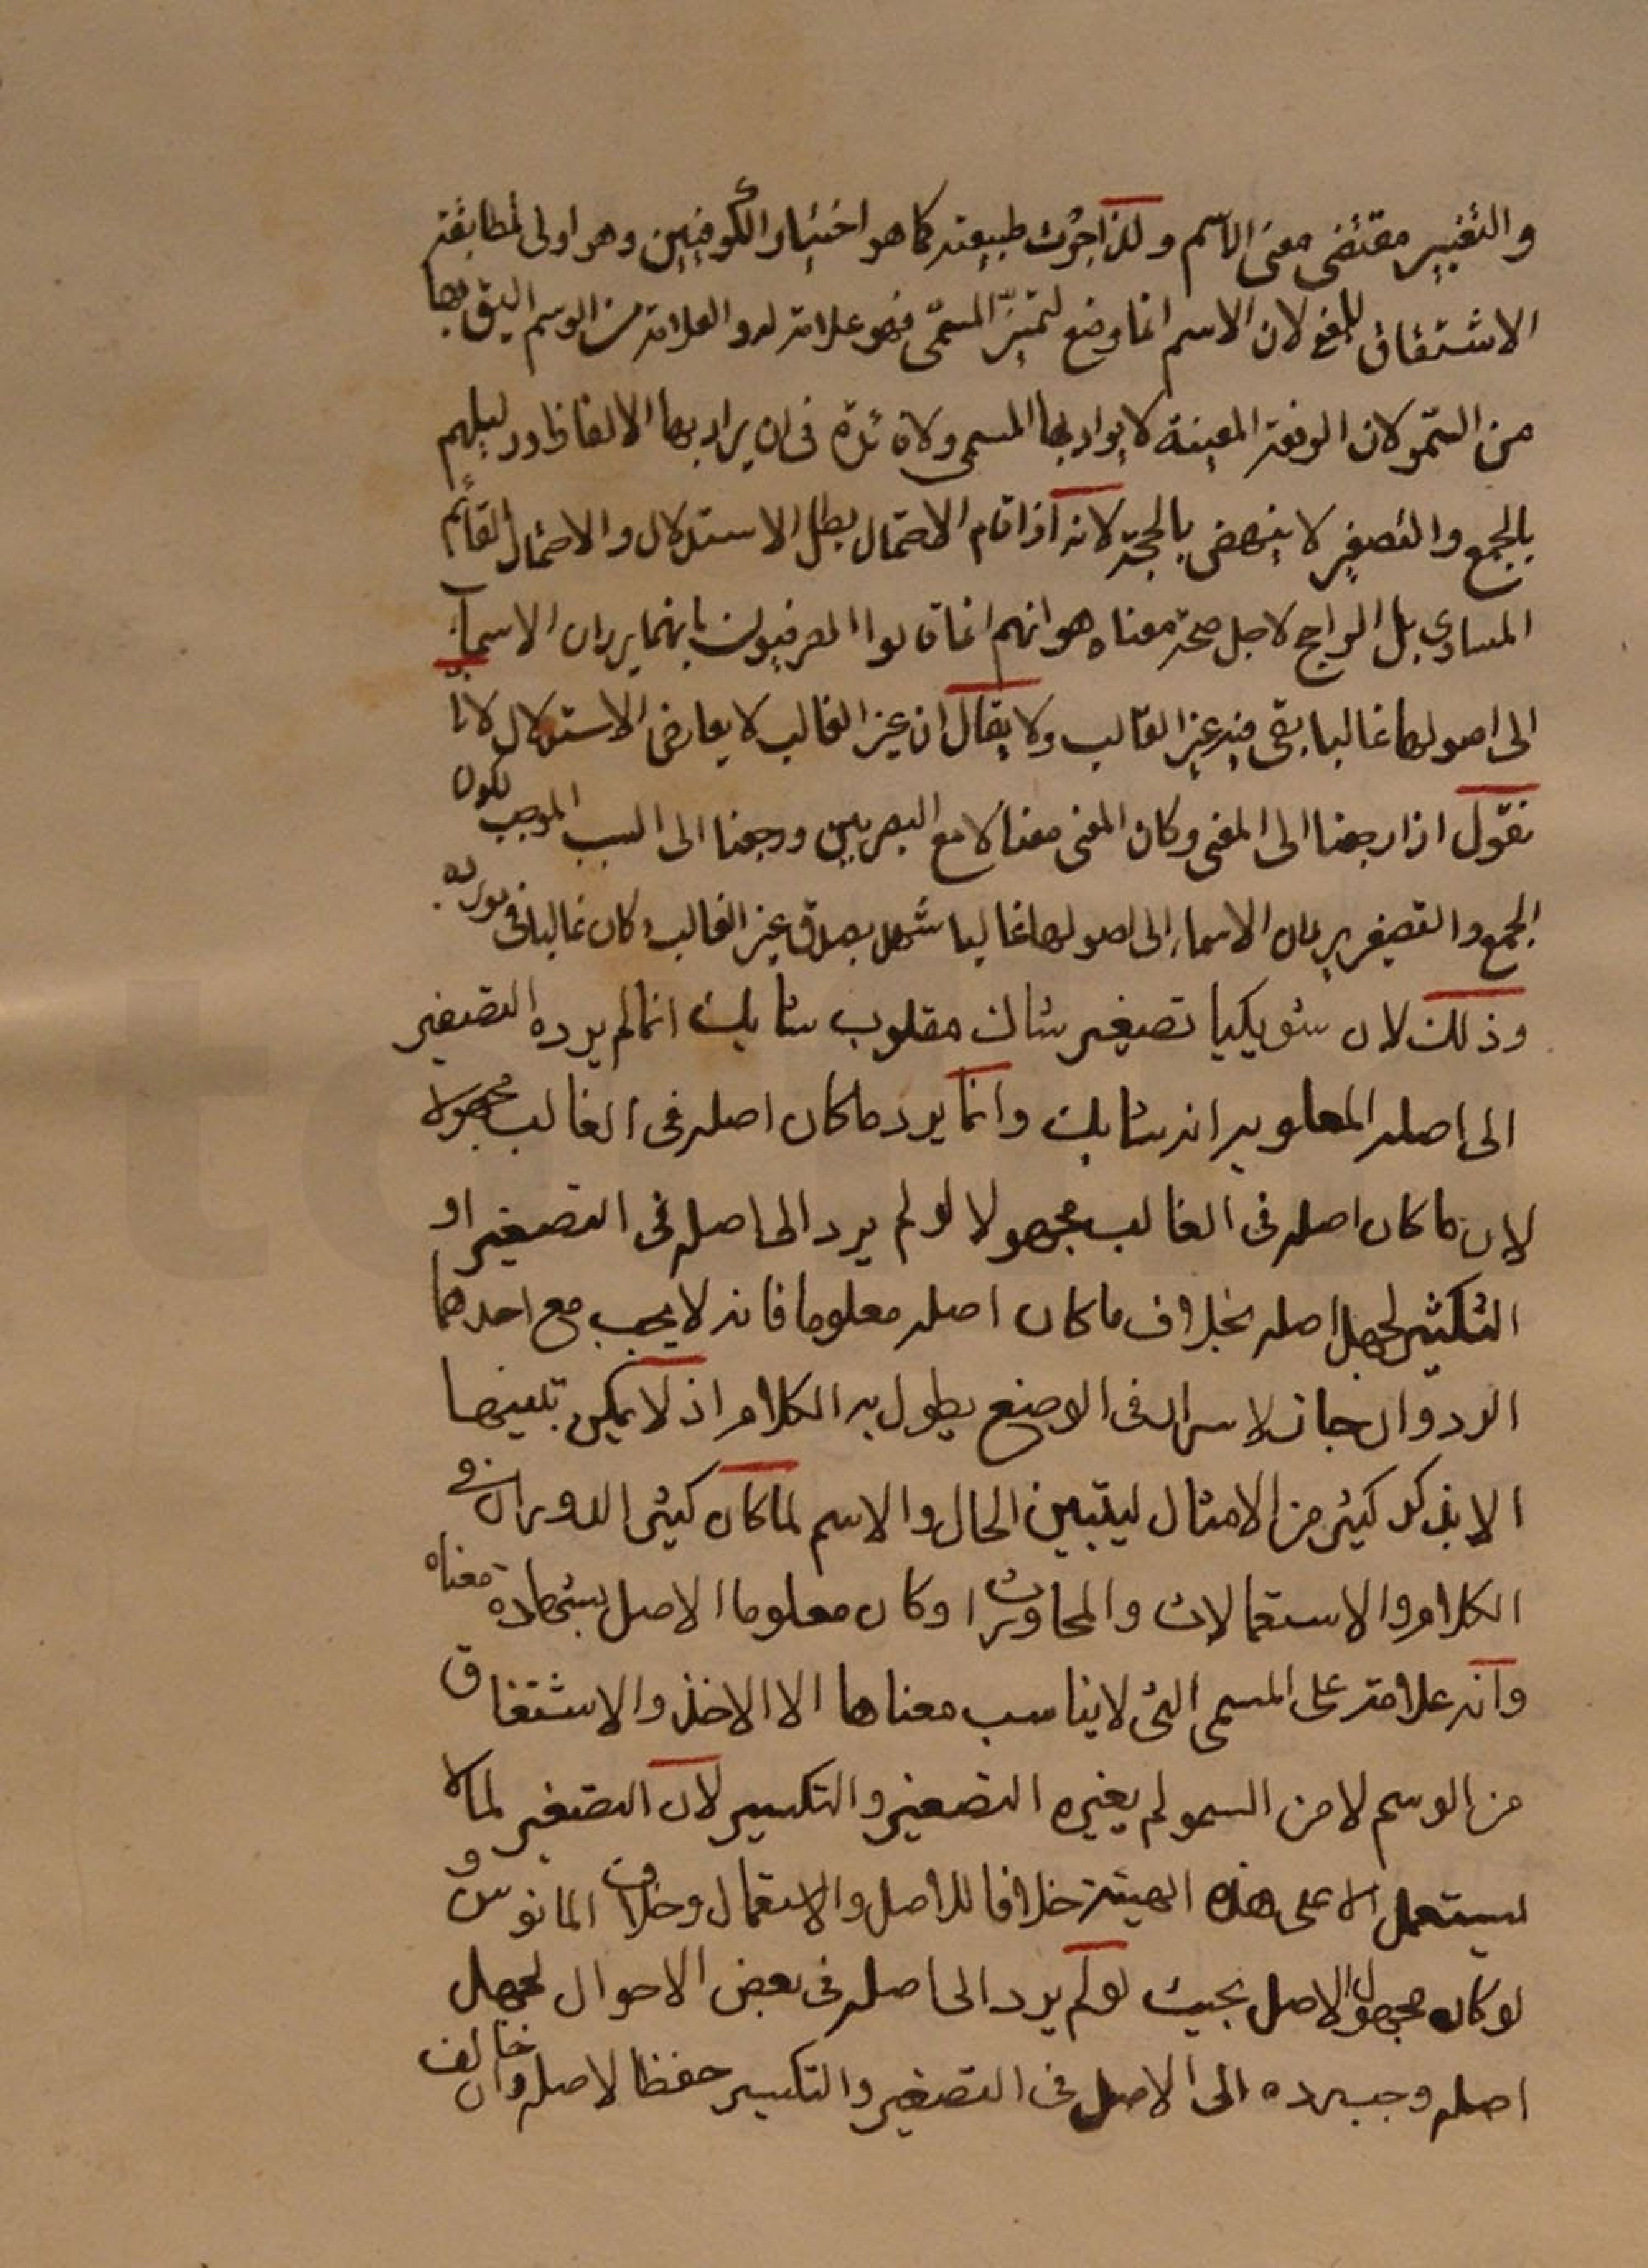 والتغيير مقتضى معنى الاسم ولذا جرت طبيعته كما هو اختيار الكوفيين وهو اولى لمطابقة
الاشتقاق للمعنى لان الاسم انما وضع لتميز المسمّى فهو علامة له والعلامة من الوسم اليق بها
من السّمو لان الرفعة المعينة لا يراد بها المسمى ولا فائدة فى ان يراد بها الالفاظ ودليلهم
بالجمع والتصغير لا ينهض بالحجة لانه اذا قام الاحتمال بطل الاستدلال والاحتمال القائم
المساوى بل الراجح لاجل صحة معناه هو انهم انما قالوا الصرفيون بانهما يردان الاسماء
الى اصولها غالبا بقى فيه غير الغالب ولا يقال ان غير الغالب لا يعارض الاستدلال لانا
نقول اذا رجعنا الى المعنى وكان المعنى معنا لا مع البصريين ورجعنا الى السبب الموجب لكون
الجمع والتصغير يردان الاسماء الى اصولها غالبا شهد بصدق غير الغالب وكان غالبا فى
وذلك لان شويكيا تصغير شاك مقلوب شايك انما لم يرده التصغير
الى اصله المعلوم انه شايك وانما يرد ما كان اصله فى الغالب مجهولا
لان ما كان اصله فى الغالب مجهولا لو لم يرد الى اصله فى التصغير او
التكثير لجهل اصله بخلاف ما كان اصله معلوما فانه لا يجب مع احدهما
الرد وان جاز لاسرار فى الوضع يطول به الكلام اذ لا يمكن تبيينها
الا بذكر كثير من الامثال ليتبين الحال والاسم لما كان كثير الدوران فى
الكلام والاستعمالات والمحاورات وكان معلوما الاصل بشهادة معناه
وانه علامة على المسمى التى لا يناسب معناها الا الاخذ والاشتقاق
من الوسم لا من السمو لم يغيره التصغير والتكسير لان التصغير لما لا
يستعمل الا على هذه الهيئة خلافا للاصل والاستعمال وخلاف المانوس و
لو كان مجهول الاصل بحيث لو لم يرد الى اصله فى بعض الاحوال لجهل
اصله وجب رده الى الاصل فى التصغير والتكسير حفظا لاصله وان خالف